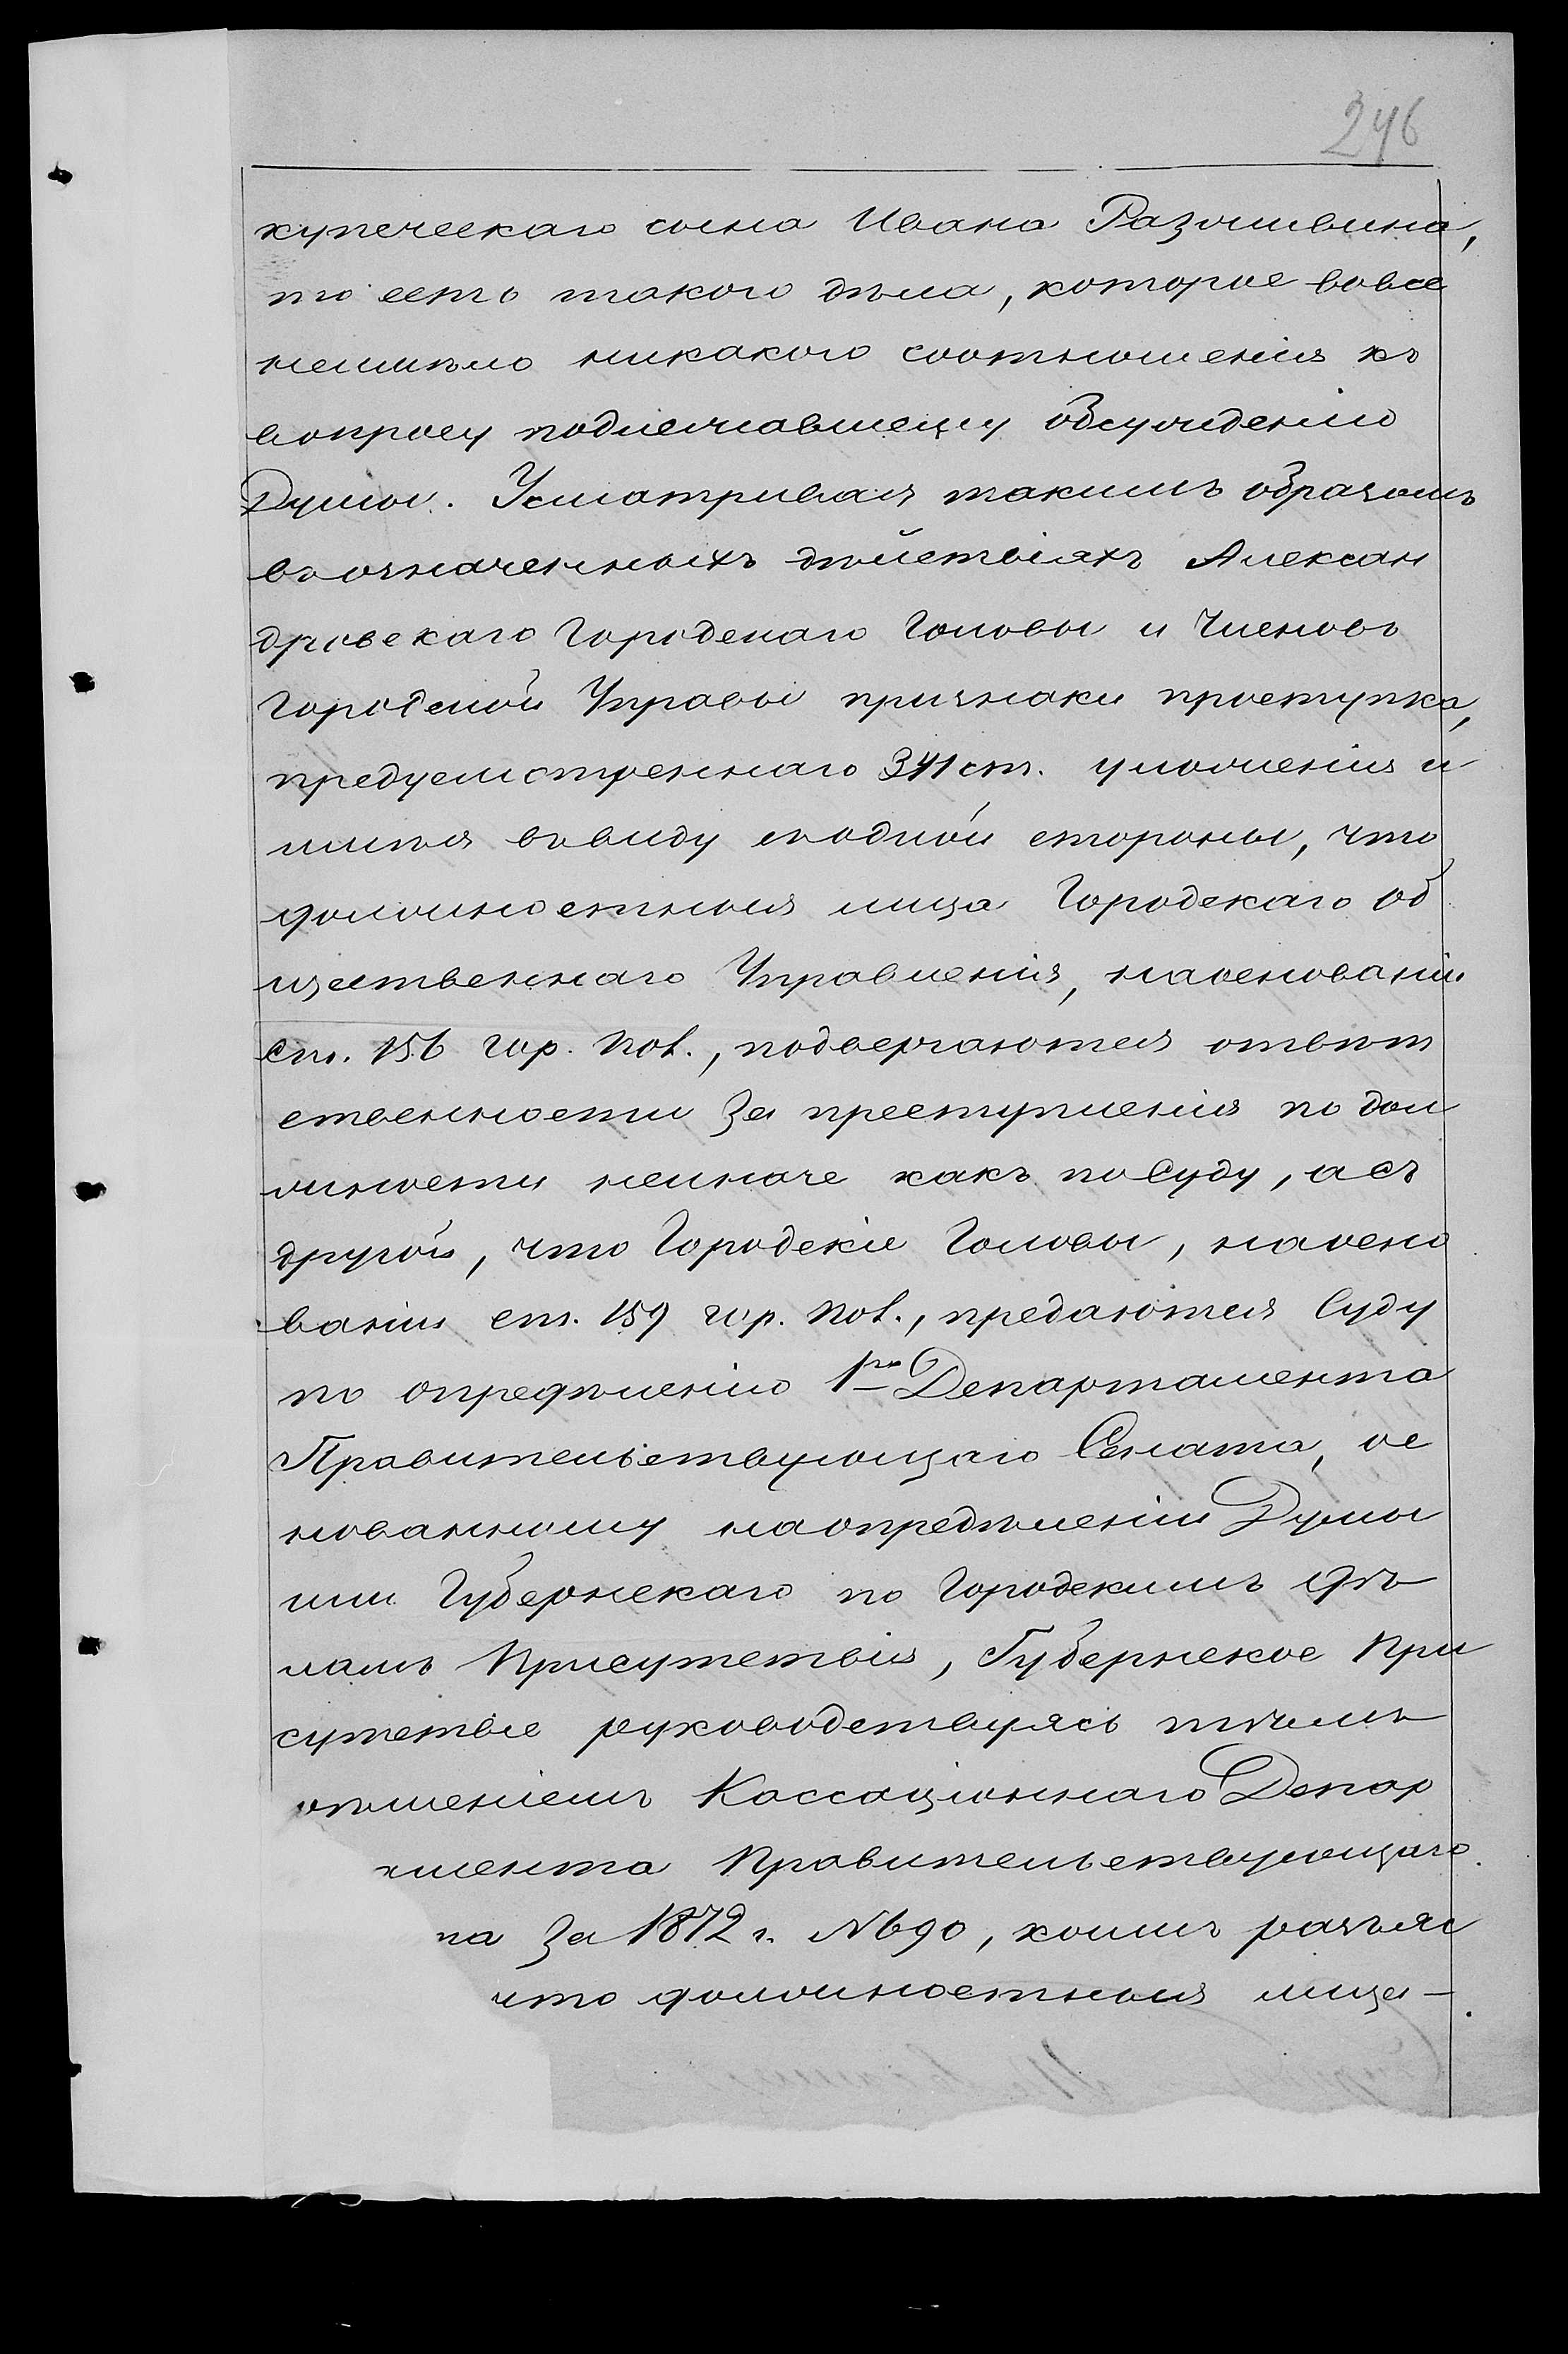 246
купеческаго сына Ивана Разживина,
то есть такого дѣла, которое вовсе
неимѣло никакого соотношенія къ
вопросу подлежавшему обсужденію
Думы. Усматривая такимъ образомъ
въ означенныхъ дѣйствіяхъ Алексан
дровскаго Городскаго Головы и Членовъ
Городской Управы признаки проступка,
предусмотреннаго 341 ст. уложенія и
имѣя въ виду съ одной стороны, что
должностныя лица Городскаго Об
щественнаго Управленія, наоснованіи
ст. 156 гор. пол., подвергаются отвѣт
ственности за преступленія по дол
жности неиначе какъ по Суду, а съ
другой, что Городскіе Головы, наосно
ваніи ст. 159 гор. пол., предаются Суду
по опредѣленію 1го Департамента
Правительствующаго Сената, ос
нованному наопредѣленіи Думы
или Губернскаго по Городскимъ дѣ
ламъ Присутствія, Губернское При
сутствіе руководствуясь тѣмъ
ѣшеніемъ Кассаціоннаго Депар
мента Правительствующаго
та за 1872 г. №690, коимъ разъяс
что должностныя лица –